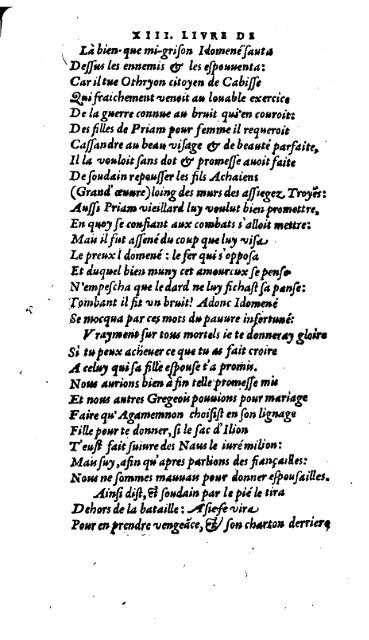 XIII. LIVRE DE
Là bien-que mi-grison Idomené sauta
Dessus les ennemis & les espouuenta:
Car il tue Othryon citoyen de Cabisse
Qui fraichement venoit au louable exercice
De la guerre connue au bruit qui en couroit:
Des filles de Priam pour femme il requeroit
Cassandre au beau visage & de beauté parfaite,
Il la vouloit sans dot & promesse auoit faite
De soudain repousser les fils Achaiens
(Grand' œuure) loing des murs des assiegez Troyẽs:
Aussi Priam vieillard luy voulut bien promettre,
En quoy se confiant aux combats s'alloit mettre:
Mais il fut assené du coup que luy visa
Le preux Idomené: le fer qui s'opposa
Et duquel bien muny cet amoureux se pense
N'empescha que le dard ne luy fichast sa panse:
Tombant il fit vn bruit! Adonc Idomené
Se mocqua par ces mots du pauure infortuné:
Vrayment sur tous mortels ie te donneray gloire
Si tu peux acheuer ce que tu as fait croire
A celuy qui sa fille espouse t'a promis.
Nous aurions bien à fin telle promesse mis
Et nous autres Gregeois pouuions pour mariage
Faire qu'Agamemnon choisist en son lignage
Fille pour te donner, si le sac d'Ilion
T'eust fait suiure des Naus le iuré milion:
Mais suy, afin qu'apres parlions des fiançailles:
Nous ne sommes mauuais pour donner espousailles.
Ainsi dist, & soudain par le pié le tira
Dehors de la bataille: Asie se vira
Pour en prendre vengeãce, & son charton derriere